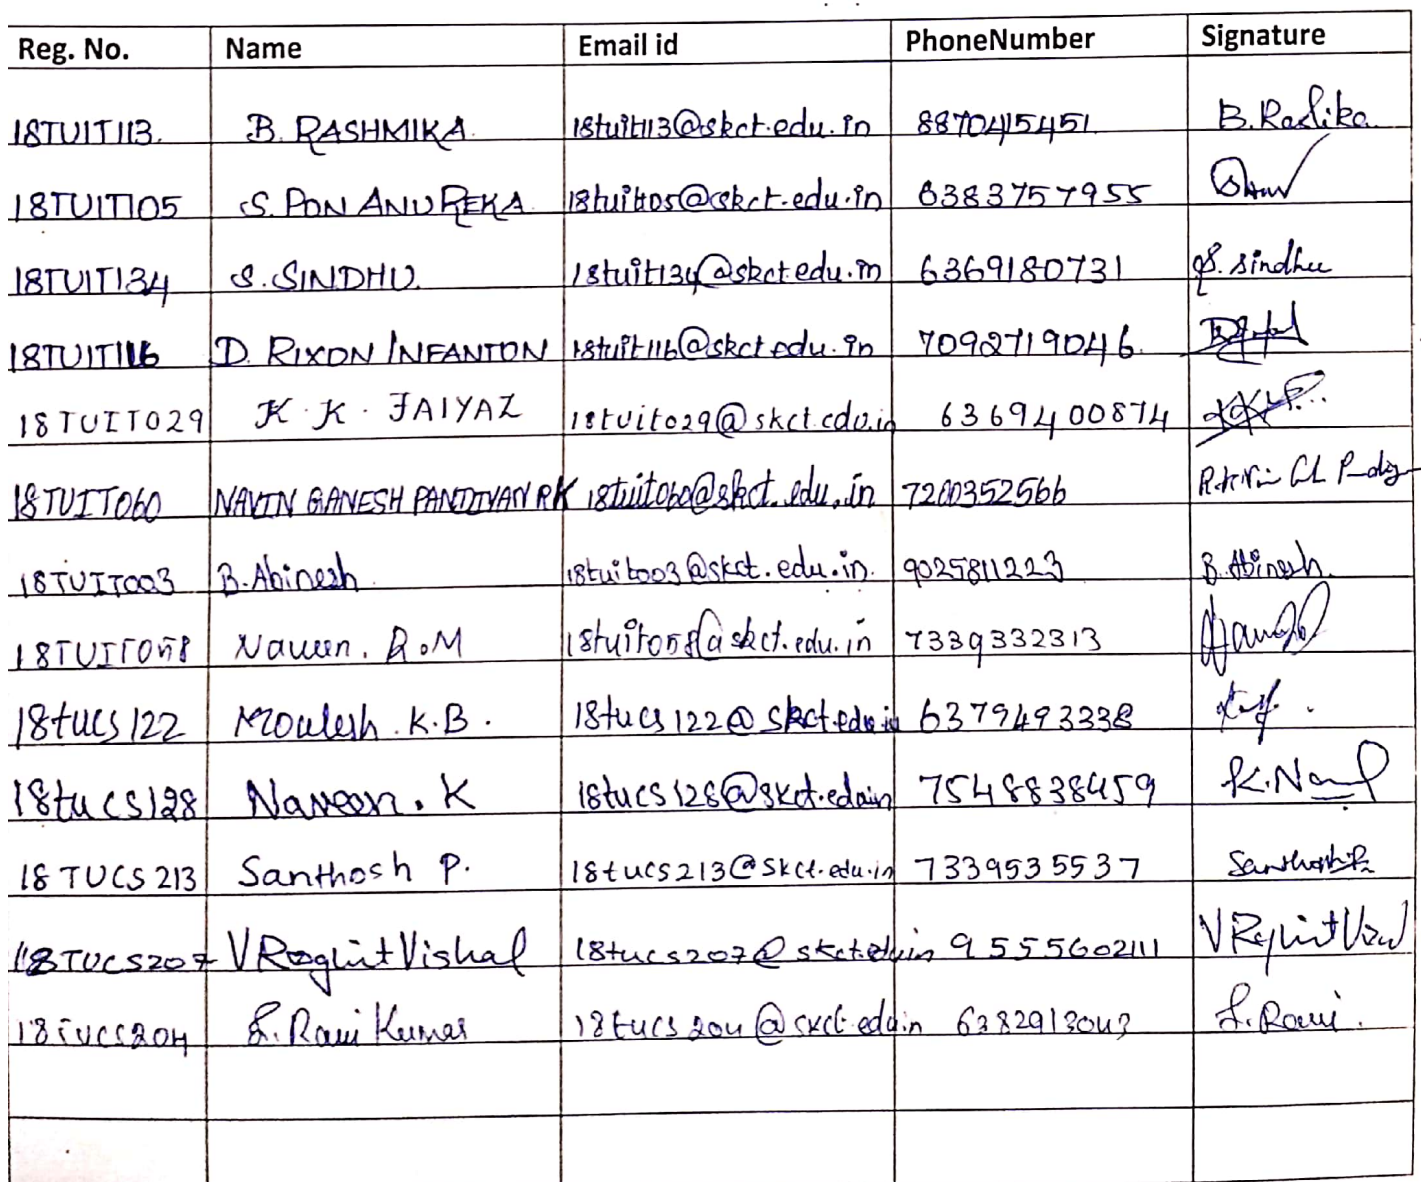 Reg. No. Name Email id PhoneNumber Signature
18TUIT113. B. RASHMIKA. 18tuit113@skct.edu.in 8870415451
18TUIT105 S. PON ANU REKA 18tuit105@skct.edu.in 6383757955
18TUIT134 S. SINDHU. 18tuit134@skct.edu.in 6369180731 S. Sindhu
18TUIT116 D. RIXON INFANTON 18tuit116@skct.edu.in 7092719046.
18TUIT029 K. K. FAIYAZ 18tuit029@skct.edu.in 6369400874
18TUIT060 NAVIN GANESH PANDIYAN RK 18tuit060@skct.edu.in 7200352566
18TUIT003 B. Abinesh 18tuit003@skct.edu.in. 9025811223 B. Abinesh.
18TUIT058 Naveen. R.M 18tuit058@skct.edu.in 7339332313
18tucs122 Moulesh. K.B. 18tucs122@skct.edu.in 6379493338
18tucs128 Naveen. K 18tucs128@skct.edu.in 7548838459
18TUCS213 Santhosh P. 18tucs213@skct.edu.in 7339535537 Santhosh P.
18TUCS207 V Vishal 18tucs207@skct.edu.in 9555602111
18TUCS204 Ravi Kumar 18tucs204@skct.edu.in 6382913043 Ravi.